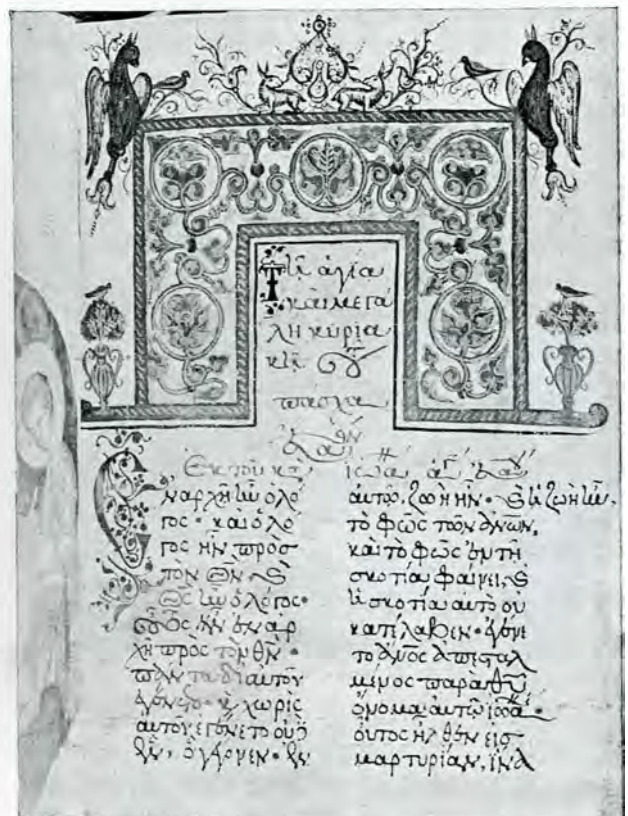 Τῇ ἁγία
καὶ μεγά
λη κυρια
κῇ τ
πάσχα
Ἐκ τοῦ κτ Ἰωά ἁγ
Ἐν ἀρχῆ ἦν ὁ λό
γος · καὶ ὁ λό
γος ἦν πρὸσ
τὸν θν · καὶ
θς ἦν ὁ λόγος ·
οὗτος ἦν ἐν ἀρ
χῆ πρὸς τὸν θν ·
πάντα δι αὐτοῦ
ἐγένετο · καὶ χωρὶς
αὐτοῦ ἐγένετο οὐδ
ἕν · ὃ γέγονεν · ἐν
αὐτῶ ζωὴ ἦν · καὶ ἡ ζωὴ ἦν
τὸ φῶς τῶν ἀνων ·
καὶ τὸ φῶς ἐν τῆ
σκοτία φαίνει · καὶ
ἡ σκοτία αὐτὸ οὐ
κατέλαβεν · ἐγένε
το ἄνος ἀπεσταλ
μένος παρὰ θυ
ὄνομα αὐτῶ ἰωά ·
οὗτος ἦλθεν εἰς
μαρτυρίαν · ἵνα